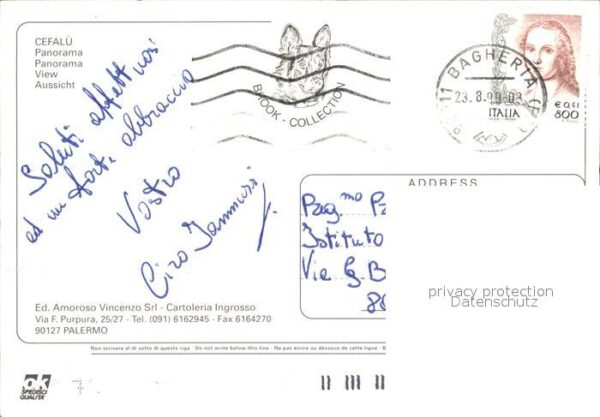 CEFALÙ
Panorama
Panorama
View
Aussicht
BROOK - COLLECTION
11 BAGHERIA (P
23.8.99-0
€ 0,41
ITALIA
800
Saluti affettuosi
ed un forte abbraccio
Vostro
Ciro
ADDRESS
Preg.mo P
Istituto
Via G B
80
privacy protection
Datenschutz
Ed. Amoroso Vincenzo Srl - Cartoleria Ingrosso
Via F. Purpura, 25/27 - Tel. (091) 6162945 - Fax 6164270
90127 PALERMO
Non scrivere al di sotto di questa riga - Do not write below this line - Ne pas écrire au dessous de cette ligne -
ok
SPEDISCI
QUALITÀ